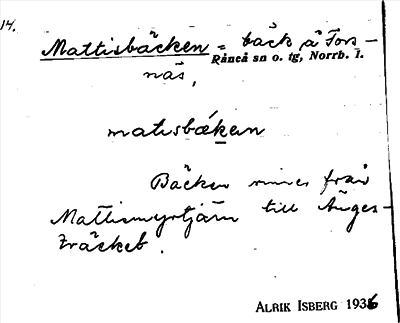 14.
Mattisbäcken = bäck å Fors-
näs, Råneå sn o. tg, Norrb. l.
matisbæken
Bäcken rinner från
Mattismyrtjärn till Ånges-
träcket.
ALRIK ISBERG 1936